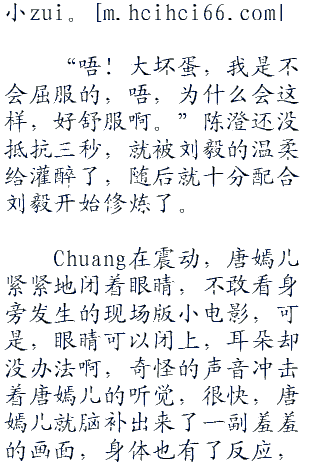 小zui。[m.hcihci66.com]
“唔！大坏蛋，我是不
会屈服的，唔，为什么会这
样，好舒服啊。”陈澄还没
抵抗三秒，就被刘毅的温柔
给灌醉了，随后就十分配合
刘毅开始修炼了。
Chuang在震动，唐嫣儿
紧紧地闭着眼睛，不敢看身
旁发生的现场版小电影，可
是，眼睛可以闭上，耳朵却
没办法啊，奇怪的声音冲击
着唐嫣儿的听觉，很快，唐
嫣儿就脑补出来了一副羞羞
的画面，身体也有了反应，